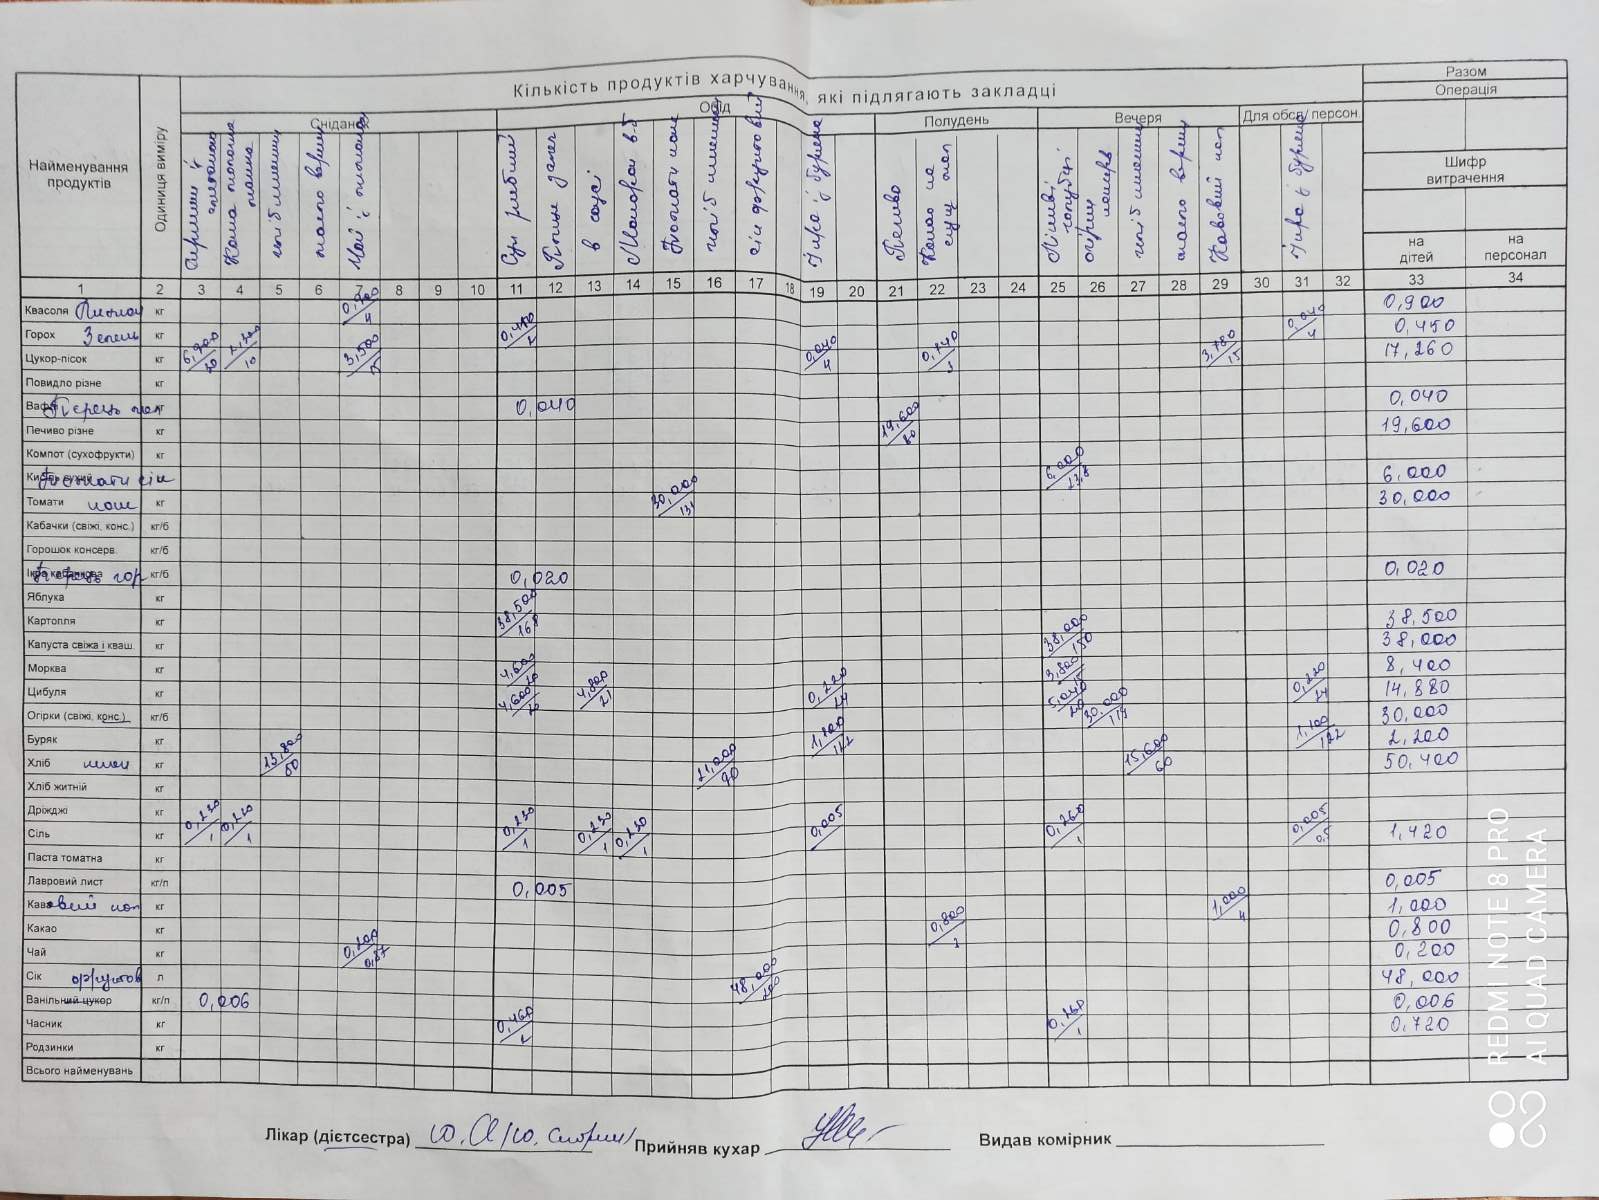 Кількість продуктів харчування, які підлягають закладці
Разом
Операція
Найменування продуктів
Одиниця виміру
Сніданок
Обід
Полудень
Вечеря
Для обсл. персон.
Шифр витрачення
на дітей
на персонал
хліб пшенич
масло вершк
Чай з лимоном
Суп рибний
в соусі
Макарон в-б
Томати кон
хліб пшенич
сік фруктовий
Ікра з буряка
Печиво
Какао на згущ мол
хліб пшенич
масло вершк
Кавовий нап
Ікра з буряка
1 2 3 4 5 6 7 8 9 10 11 12 13 14 15 16 17 18 19 20 21 22 23 24 25 26 27 28 29 30 31 32 33 34
Квасоля Лимон кг 0,900/4 0,900
Горох Зелень кг 0,450/2 0,040/4 0,450
Цукор-пісок кг 6,900/30 2,300/10 3,500/15 0,040/4 0,740/3 3,780/15 17,260
Повидло різне кг
Вафлі Перець мол кг 0,040 0,040
Печиво різне кг 19,600/80 19,600
Компот (сухофрукти) кг
Томати сік кг 6,000/23,8 6,000
Томати кон кг 30,000/131 30,000
Кабачки (свіжі, конс.) кг/б
Горошок консерв. кг/б
Ікра кабачкова Перець гор кг/б 0,020 0,020
Яблука кг
Картопля кг 38,500/168 38,500
Капуста свіжа і кваш. кг 38,000/150 38,000
Морква кг 4,600/20 3,800/15 8,400
Цибуля кг 4,600/20 4,800/21 0,220/24 5,040/20 0,220/24 14,880
Огірки (свіжі, конс.) кг/б 30,000/119 30,000
Буряк кг 1,100/122 1,100/122 2,200
Хліб пшен кг 13,800/60 21,000/90 15,600/60 50,400
Хліб житній кг
Дріжджі кг
Сіль кг 0,230/1 0,230/1 0,230/1 0,230/1 0,230/1 0,005 0,260/1 0,005/0,5 1,420
Паста томатна кг
Лавровий лист кг/п 0,005 0,005
Кавовий нап кг 1,000/4 1,000
Какао кг 0,800/3 0,800
Чай кг 0,200/0,87 0,200
Сік фруктов л 48,000/200 48,000
Ванільний цукор кг/п 0,006 0,006
Часник кг 0,460/2 0,260/1 0,720
Родзинки кг
Всього найменувань
Лікар (дієтсестра)
Прийняв кухар
Видав комірник
REDMI NOTE 8 PRO
AI QUAD CAMERA